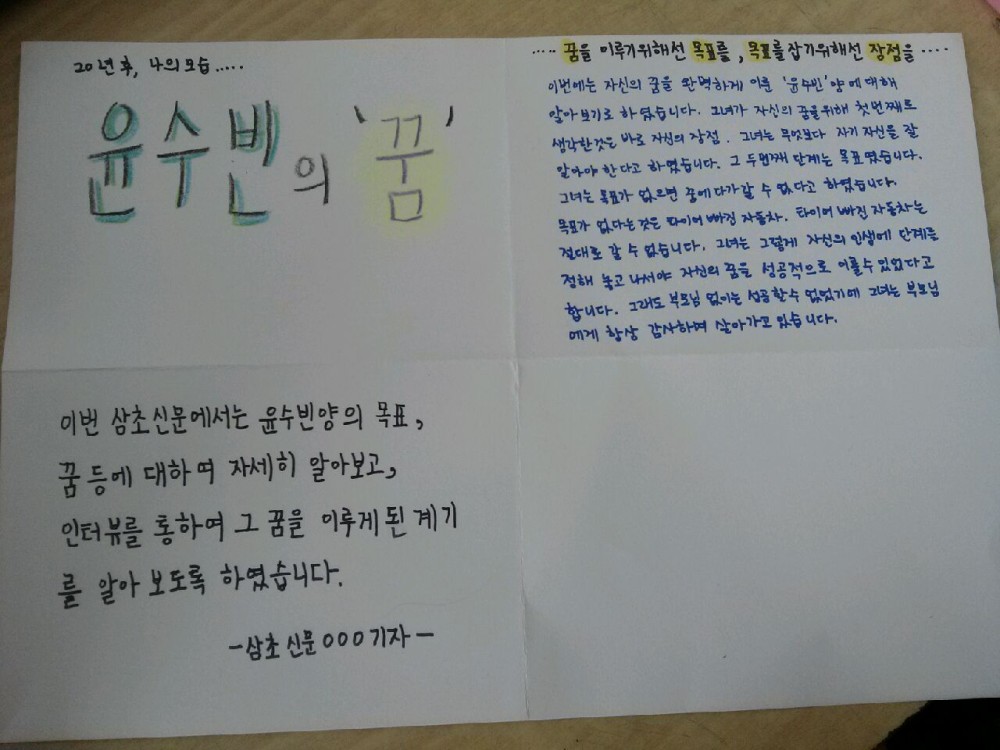 20년 후, 나의 모습.....
윤수빈의 '꿈'
이번 삼초신문에서는 윤수빈양의 목표,
꿈 등에 대하여 자세히 알아보고,
인터뷰를 통하여 그 꿈을 이루게 된 계기
를 알아 보도록 하였습니다.
-삼초 신문 000기자-
.... 꿈을 이루기위해선 목표를, 목표를 잡기위해선 장점을 ....
이번에는 자신의 꿈을 완벽하게 이룬 '윤수빈'양에 대해
알아보기로 하였습니다. 그녀가 자신의 꿈을위해 첫번째로
생각한것은 바로 자신의 장점. 그녀는 무엇보다 자기 자신을 잘
알아야 한다고 하였습니다. 그 두번째 단계는 목표였습니다.
그녀는 목표가 없으면 꿈에 다가갈 수 없다고 하였습니다.
목표가 없다는 것은 타이어 빠진 자동차. 타이어 빠진 자동차는
절대로 갈 수 없습니다. 그녀는 그렇게 자신의 인생에 단계를
정해 놓고 나서야 자신의 꿈을 성공적으로 이룰수 있었다고
합니다. 그래도 부모님 없이는 성공할수 없었기에 그녀는 부모님
에게 항상 감사하며 살아가고 있습니다.